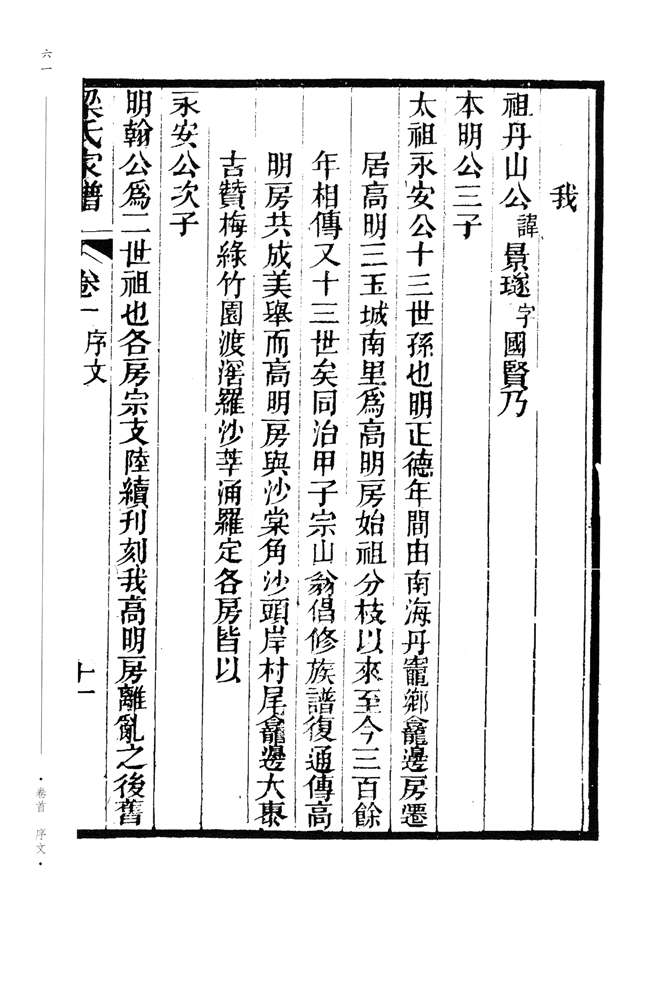 我
祖丹山公諱景璲字國賢乃
本明公三子
太祖永安公十三世孫也明正德年間由南海丹竈鄉龕邊房遷
居高明三玉城南里爲高明房始祖分枝以來至今三百餘
年相傳又十三世矣同治甲子宗山翁倡修族譜復通傳高
明房共成美舉而高明房與沙棠角沙頭岸村尾龕邊大東
古贊梅綠竹園渡滘羅沙莘涌羅定各房皆以
永安公次子
明翰公爲二世祖也各房宗支陸續刊刻我高明房離亂之後舊
梁氏家譜 卷一 序文 十一
六一
·卷首 序文·